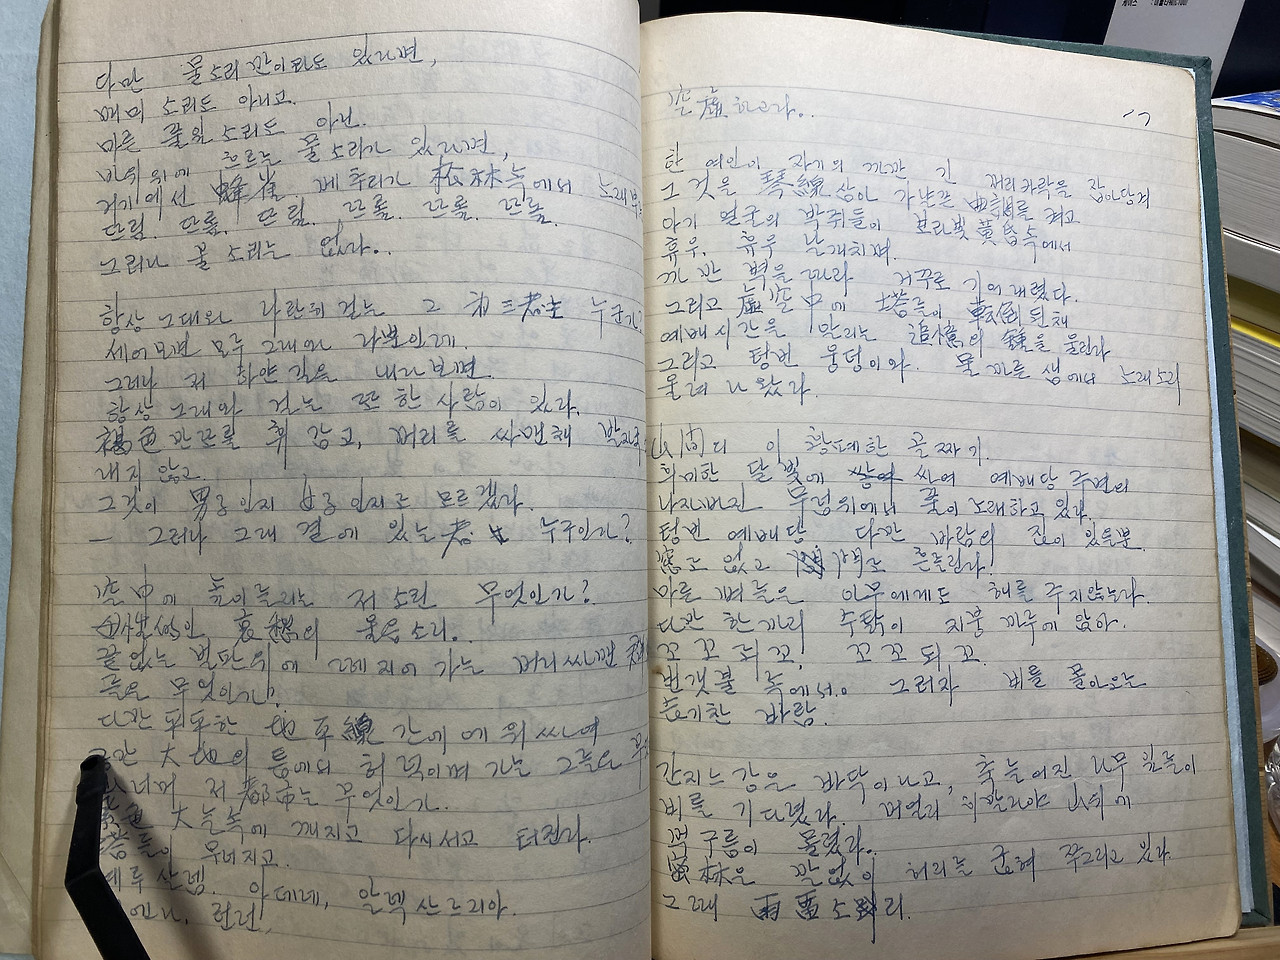 다만 물소리만이라도 있다면,
매미 소리도 아니고.
마른 풀잎 소리도 아닌.
바위 위에 흐르는 물소리가 있다면,
거기에선 蜂雀 메추리가 松林속에서 노래
뜨맆. 뜨롶. 뜨맆. 뜨롶. 뜨롶. 뜨롶.
그러나 물 소리는 없다..
항상 그대와 나란히 걷는 그 第三者는 누군가?
세어보면 모두 그대와 나뿐인데.
그러나 저 하얀 길을 내다보면
항상 그대와 걷는 또 한 사람이 있다.
褐色만또를 휘 감고, 머리를 싸맨채
내지 않고.
그것이 男子인지 女子인지도 모르겠다.
— 그러나 그대 곁에 있는 者는 누구인가?
空中에 높이 들리는 저 소린 무엇인가?
哀愁의 울음소리..
끝없는 벌판위에 떼지어 가는 머리싸맨
들은 무엇인가?
다만 平平한 地平線 간에 에워싸여
大地의 틈에서 허덕이며 가는 그들은
너머 저 都市는 무엇인가..
大늘속에 깨지고 다시서고 터진다.
塔들이 무너지고.
예루산렘. 아데네, 알렉산드리아.
엔나. 런던,
空虛하고나..
17
한 여인이 자기의 까만 긴 머리카락을 잡아당겨
그것을 琴線삼아 가냘픈 曲調를 켜고
아기 얼굴의 박쥐들이 보라빛 黃昏속에서
휴우. 휴우 날개치며.
까만 벽을 따라 거꾸로 기어내렸다.
그리고 虛空中에 塔들이 轉倒된채
예배시간을 알리는 追憶의 鐘을 울린다
그리고 텅빈 웅덩이와. 물 마른 샘에서 노래소리
울려 나왔다.
山間의 이 황폐한 골짜기.
희미한 달빛에 싸여 예배당 주변의
나자빠진 무덤위에서 풀이 노래하고 있다.
텅빈 예배당 다만 바람의 집이 있을뿐.
窓도 없고 門도 흔들린다.
마른 뼈들은 아무에게도 해를 주지않는다.
다만 한마리 수탉이 지붕 마루에 앉아.
꼬꼬되꼬. 꼬꼬되꼬.
번갯불 속에서.. 그러자 비를 몰아오는
습기찬 바람.
간지스강은 바닥이나고, 축 늘어진 나무 잎들이
비를 기다렸다. 머얼리 히말라야 山위에
먹구름이 몰렸다.
密林은 말없이 허리를 굽혀 쭈그리고 있다
그때 雨雷소리.